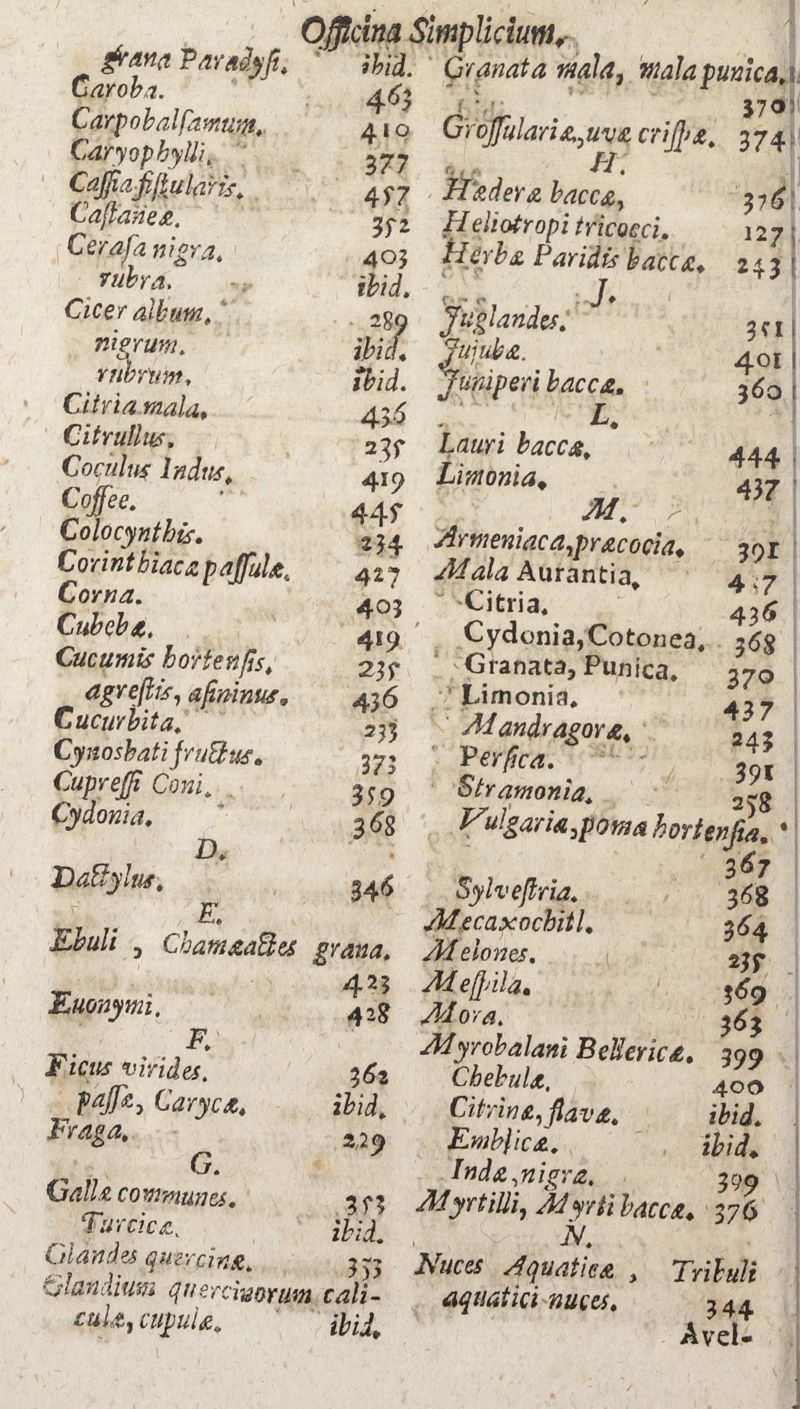 Officina Simplicium,
grana Paradysi. ibid.
Caroba. 463
Carpobalsamum. 410
Caryophylli. 377
Cassia fistularis. 457
Castaneæ. 352
Cerasa nigra. 403
rubra. ibid.
Cicer album. 289
nigrum. ibid.
rubrum. ibid.
Citria mala. 436
Citrullus. 235
Coculus Indus. 419
Coffee. 445
Colocynthis. 234
Corinthiacæ passulæ. 427
Corna. 403
Cubebæ. 419
Cucumis hortensis, 235
agrestis, asininus. 436
Cucurbita. 233
Cynosbati fructus. 373
Cupressi Coni. 359
Cydonia. 368
D.
Dactylus. 346
E.
Ebuli , Chamæactes grana.
423
Euonymi. 428
F.
Ficus virides. 362
passæ, Carycæ. ibid.
Fraga. 229
G.
Gallæ communes. 353
Turcicæ. ibid.
Glandes quercinæ. 353
Glandium quercinorum cali-
culæ, cupulæ. ibid.
Granata mala, mala punica.
370
Grossulariæ, uvæ crispæ. 374
H.
Hæderæ baccæ, 376
Heliotropi tricocci. 127
Herbæ Paridis baccæ. 243
J.
Juglandes. 351
Jujubæ. 401
Juniperi baccæ. 360
L.
Lauri baccæ. 444
Limonia. 437
M.
Armeniaca, præcocia. 391
Mala Aurantia, 437
Citria. 436
Cydonia, Cotonea. 368
Granata, Punica. 370
Limonia. 437
Mandragoræ. 243
Persica. 391
Stramonia. 258
Vulgaria, poma hortensia.
367
Sylvestria. 368
Mecaxochitl. 364
Melones. 235
Mespila. 369
Mora. 363
Myrobalani Bellericæ. 399
Chebulæ. 400
Citrinæ, flavæ. ibid.
Emblicæ. ibid.
Indæ, nigræ. 399
Myrtilli, Myrti baccæ. 376
N.
Nuces Aquaticæ , Tribuli
aquatici nuces. 344
Avel-